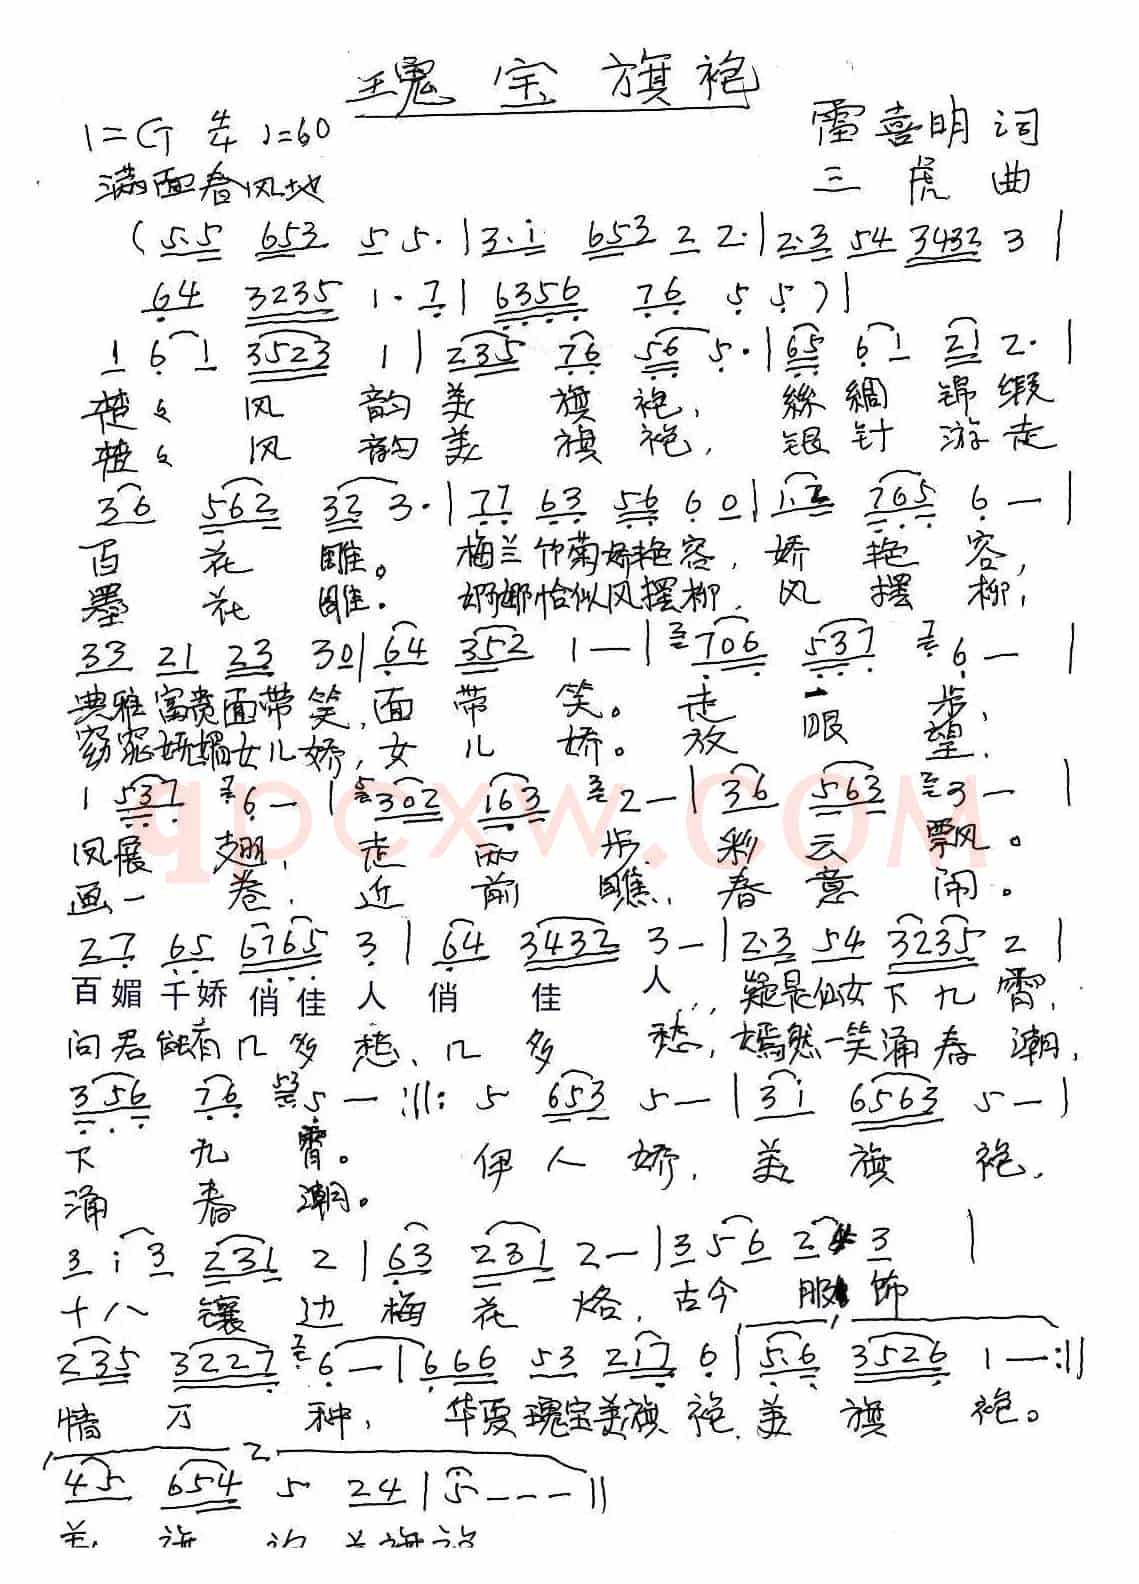 瑰宝旗袍
1=G 4/4 ♩=60 雷喜明词
满面春风地 三虎曲
(5.5 653 5 5.|3.i 653 2 2.|2.3 54 3432 3|
64 3235 1.7|6356 76 5 5)|
1 61 3523 1|235 76 56 5.|65 61 21 2.|
楚楚风韵美旗袍，絲綢锦缎
楚楚风韵美旗袍，银针游走
36 562 32 3.|77 63 56 60|1.2 765 6—|
百花雕。梅兰竹菊娇艳容，娇艳容，
墨花雕。婀娜恰似风摆柳，风摆柳，
33 21 23 30|64 352 1—|706 537 6—|
典雅富贵面带笑，面带笑。走一步，
窈窕妩媚女儿娇，女儿娇。放眼望，
1 537 6—|302 163 2—|36 563 3—|
凤展翅，走两步，彩云飘。
画一卷，近前瞧，春意闹。
qpcxw.com
27 65 6765 3|64 3432 3—|2.3 54 3235 2|
百媚千娇俏佳人俏佳人，疑是仙女下九霄，
问君能有几多愁，几多愁，嫣然一笑涌春潮，
356 76 5—:||: 5 653 5—|3i 6563 5—|
下九霄。伊人娇，美旗袍，
涌春潮。
3 i3 231 2|63 231 2—|3 56 24 3|
十八镶边梅花烙，古今服饰
235 3227 6—|666 53 217 6|5.6 3526 1—:||
情万种，华夏瑰宝美旗袍，美旗袍。
2
45 654 5 24|5---||
美旗袍美旗袍